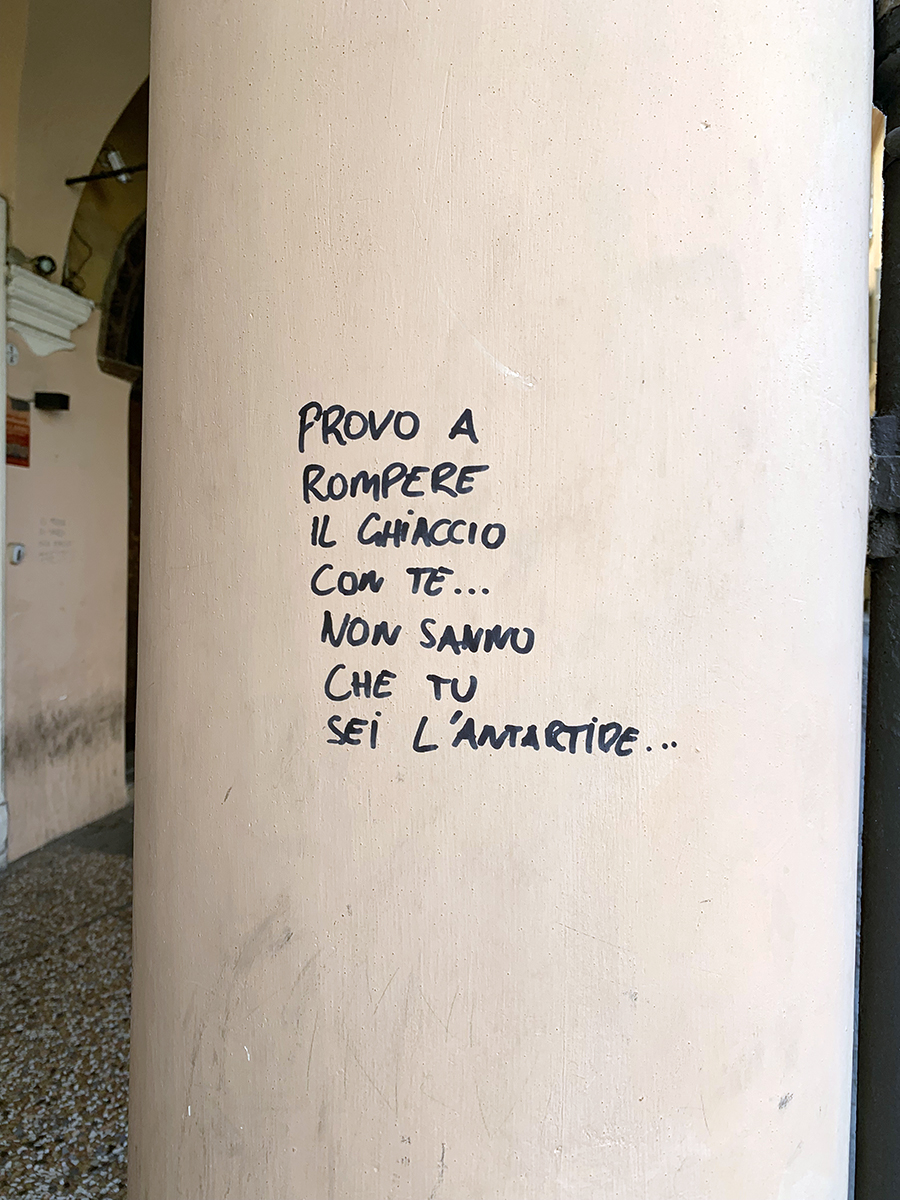 PROVO A
ROMPERE
IL GHIACCIO
CON TE...
NON SANNO
CHE TU
SEI L'ANTARTIDE...